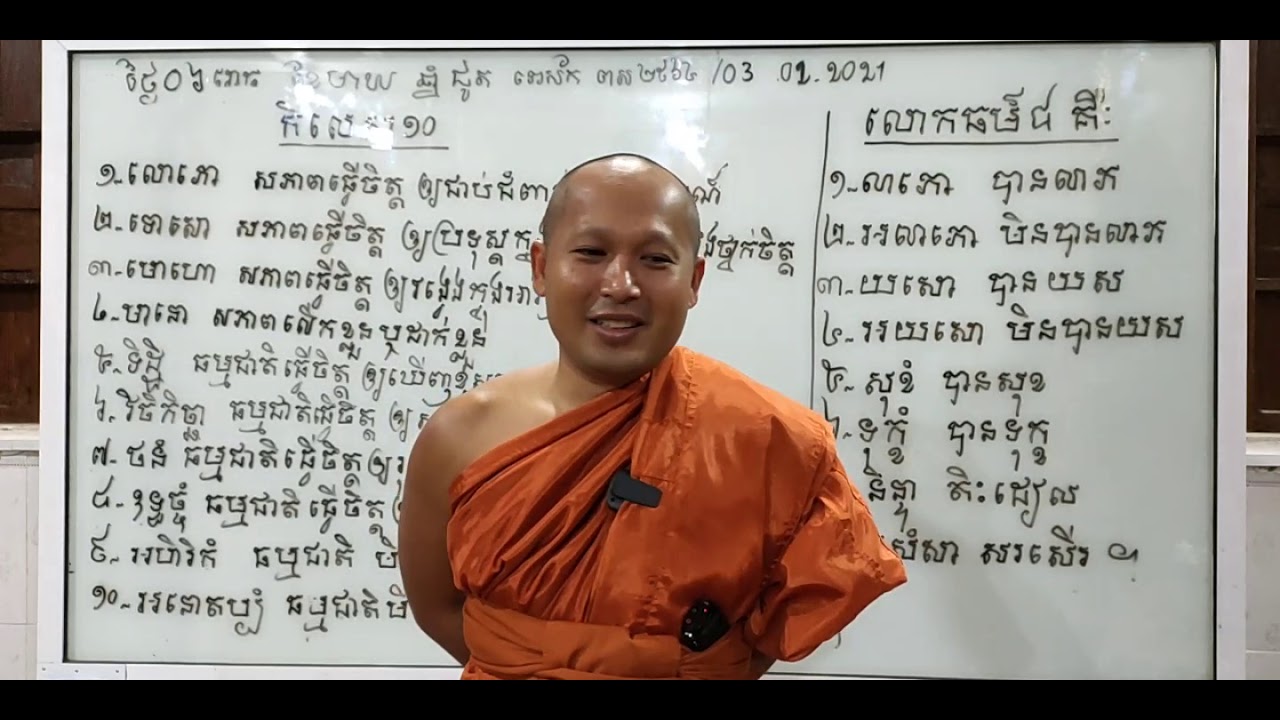 ថ្ងៃ០៦រោច ខែមាឃ ឆ្នាំ ជូត ទោស័ក ពស ២៥៦៤ /03 .02.2021
កិលេស ១០
១-លោភោ សភាពធ្វើចិត្ត ឲ្យជាប់ជំពា
២-ទោសោ សភាពធ្វើចិត្ត ឲ្យប្រទុស្តក្នុ ងថ្នាក់ចិត្ត
៣-មោហោ សភាពធ្វើចិត្ត ឲ្យវង្វេងក្នុងអារ
៤-មានោ សភាពលើកខ្លួនឬដាក់ខ្លួន
៥-ទិដ្ឋិ ធម្មជាតិធ្វើចិត្ត ឲ្យឃើញខុស
៦-វិចិកិច្ឆា ធម្មជាតិធ្វើចិត្ត ឲ្យ
៧-ថីនំ ធម្មជាតិធ្វើចិត្តឲ្យ
៨-ឧទ្ធច្ចំ ធម្មជាតិធ្វើចិត្ត
៩-អហិរិកំ ធម្មជាតិ មិ
១០-អនោតប្បំ ធម្មជាតិមិ
លោកធម៌៨ គឺ:
១-លាភោ បានលាភ
២-អលាភោ មិនបានលាភ
៣-យសោ បានយស
៤-អយសោ មិនបានយស
៥-សុខំ បានសុខ
៦-ទុក្ខំ បានទុក្ខ
និន្ទា តិះដៀល
សំសា សរសើរ ។